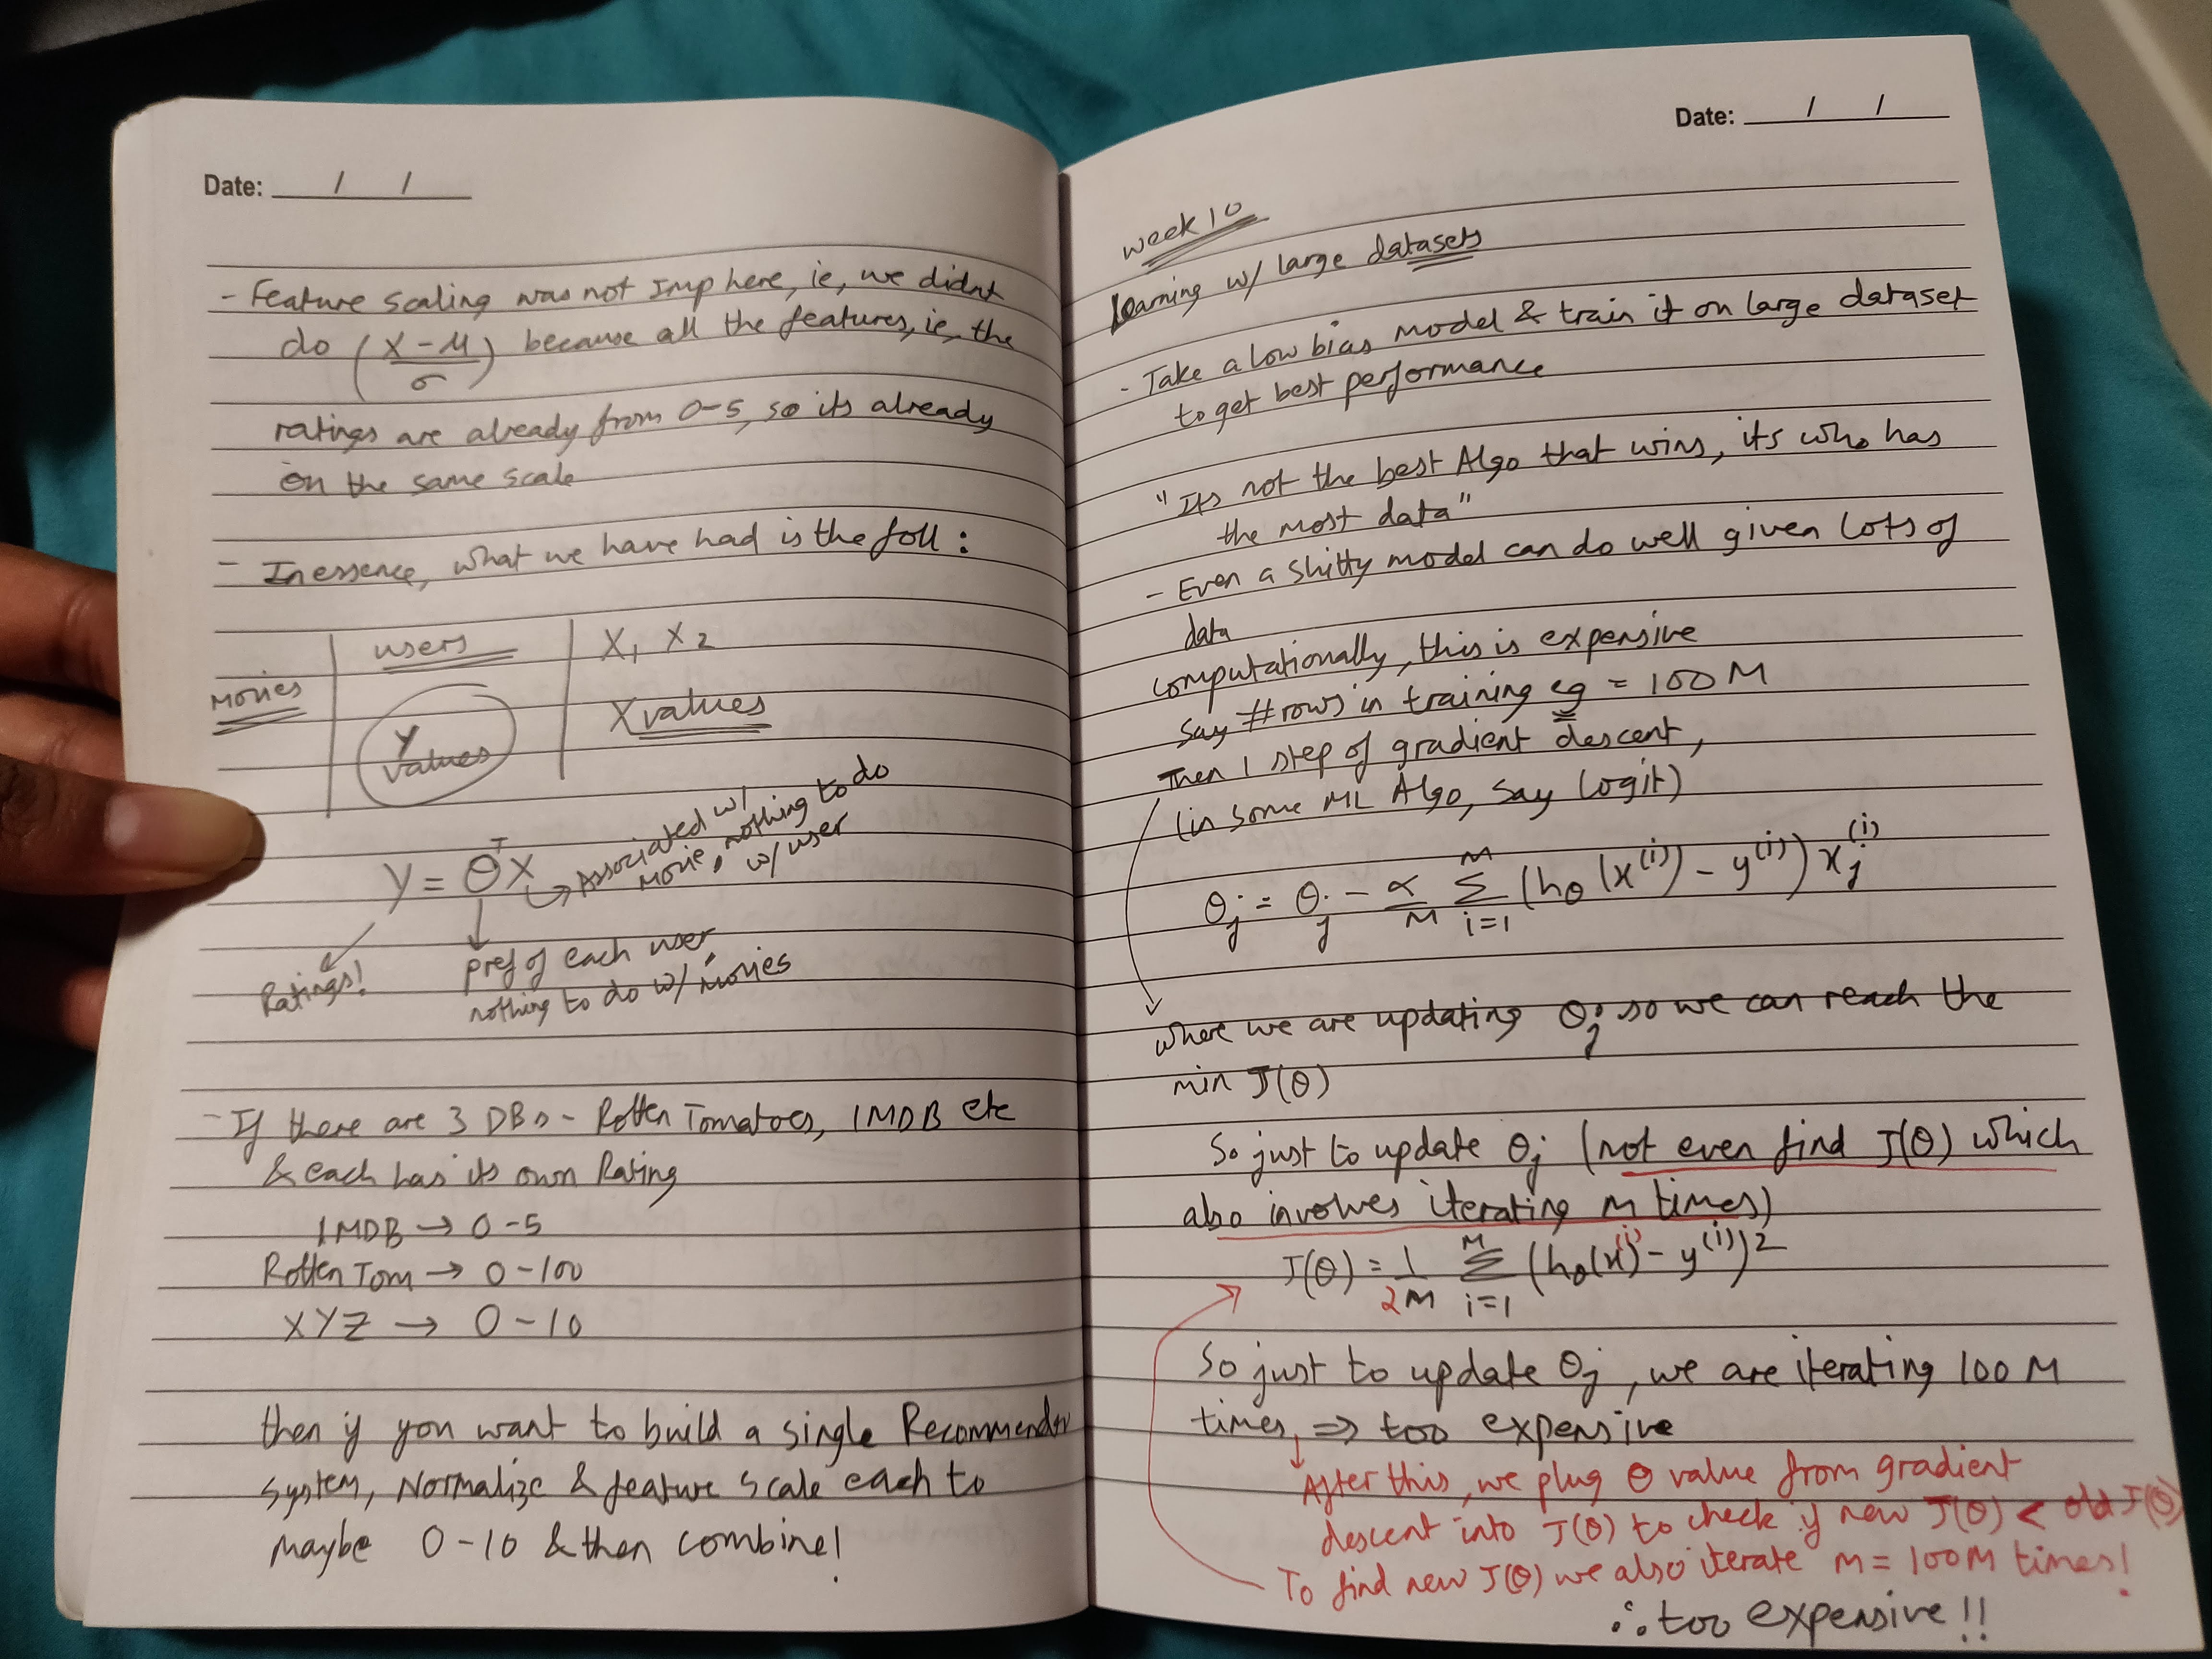 Date: / /
- Feature scaling was not Imp here, ie, we didnt
do (X - μ / σ) because all the features, ie, the
ratings are already from 0-5, so its already
on the same scale
- In essence, what we have had is the foll :
users X₁ X₂
Movies
Y values
X values
Y = θᵀX
Associated w/
Movie, nothing to do
w/ user
Ratings!
pref of each user,
nothing to do w/ movies
- If there are 3 DBs - Rotten Tomatoes, IMDB etc
& each has its own Rating
IMDB → 0-5
Rotten Tom → 0-100
XYZ → 0-10
then if you want to build a single Recommender
system, Normalize & feature scale each to
maybe 0-10 & then combine!
Date: / /
week 10
Learning w/ large datasets
- Take a low bias model & train it on large dataset
to get best performance
"Its not the best Algo that wins, its who has
the most data"
- Even a shitty model can do well given lots of
data
computationally, this is expensive
Say #rows in training eg = 100 M
Then 1 step of gradient descent,
(in some ML Algo, say logit)
θj = θj - α/M Σ_{i=1}^{M} (hθ(x⁽ⁱ⁾) - y⁽ⁱ⁾) xj⁽ⁱ⁾
where we are updating θj so we can reach the
min J(θ)
So just to update θj (not even find J(θ) which
also involves iterating M times)
J(θ) = 1/2M Σ_{i=1}^{M} (hθ(x⁽ⁱ⁾) - y⁽ⁱ⁾)²
So just to update θj, we are iterating 100 M
times, ⇒ too expensive
After this, we plug θ value from gradient
descent into J(θ) to check if new J(θ) < old J(θ)
To find new J(θ) we also iterate M = 100M times!
∴ too expensive!!